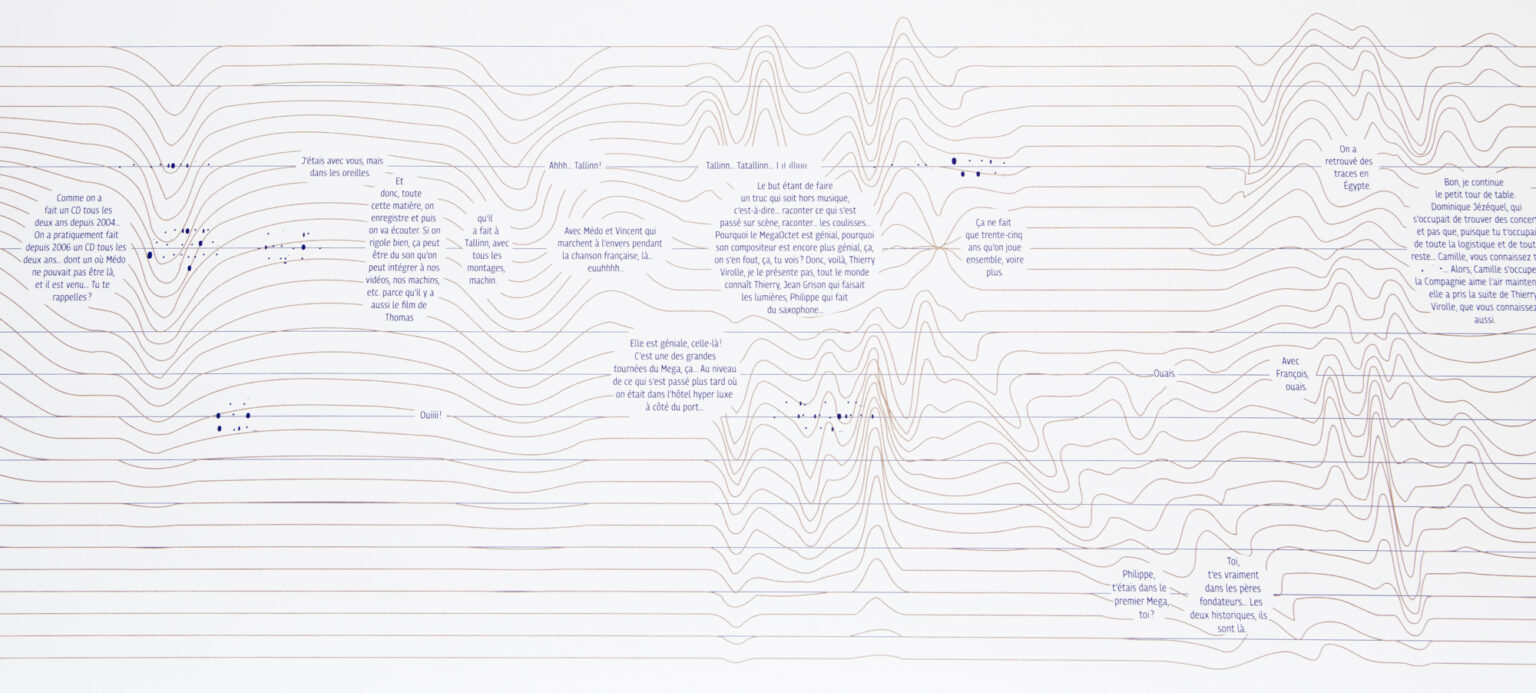 Comme on a
fait un CD tous les
deux ans depuis 2004...
On a pratiquement fait
depuis 2006 un CD tous les
deux ans... dont un où Médo
ne pouvait pas être là,
et il est venu... Tu te
rappelles ?
J'étais avec vous, mais
dans les oreilles.
Et
donc, toute
cette matière, on
enregistre et puis
on va écouter. Si on
rigole bien, ça peut
être du son qu'on
peut intégrer à nos
vidéos, nos machins,
etc. parce qu'il y a
aussi le film de
Thomas
Ouiiii !
qu'il
a fait à
Tallinn, avec
tous les
montages,
machin.
Ahhh... Tallinn !
Avec Médo et Vincent qui
marchent à l'envers pendant
la chanson française, là...
euuhhhh...
Elle est géniale, celle-là !
C'est une des grandes
tournées du Mega, ça... Au niveau
de ce qui s'est passé plus tard où
on était dans l'hôtel hyper luxe
à côté du port...
Tallinn... Tatallinn...
Le but étant de faire
un truc qui soit hors musique,
c'est-à-dire... raconter ce qui s'est
passé sur scène, raconter... les coulisses...
Pourquoi le MegaOctet est génial, pourquoi
son compositeur est encore plus génial, ça,
on s'en fout, ça, tu vois ? Donc, voilà, Thierry
Virolle, je le présente pas, tout le monde
connaît Thierry, Jean Grison qui faisait
les lumières, Philippe qui fait
du saxophone...
Ça ne fait
que trente-cinq
ans qu'on joue
ensemble, voire
plus.
Ouais.
Philippe,
t'étais dans le
premier Mega,
toi ?
Toi,
t'es vraiment
dans les pères
fondateurs... Les
deux historiques, ils
sont là.
Avec
François,
ouais.
On a
retrouvé des
traces en
Égypte.
Bon, je continue
le petit tour de table.
Dominique Jézéquel, qui
s'occupait de trouver des
et pas que, puisque tu
de toute la logistique et de
reste... Camille, vous connaissez
... Alors, Camille
la Compagnie aime l'air
elle a pris la suite de
Virolle, que vous connaissez
aussi.